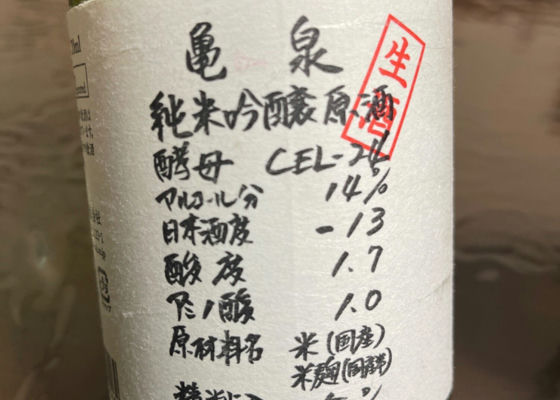 亀 泉
生酒
純米吟醸原酒
酵母 CEL-24
アルコール分 14%
日本酒度 -13
酸度 1.7
アミノ酸 1.0
原材料名 米(国産)
米麹(国産米)